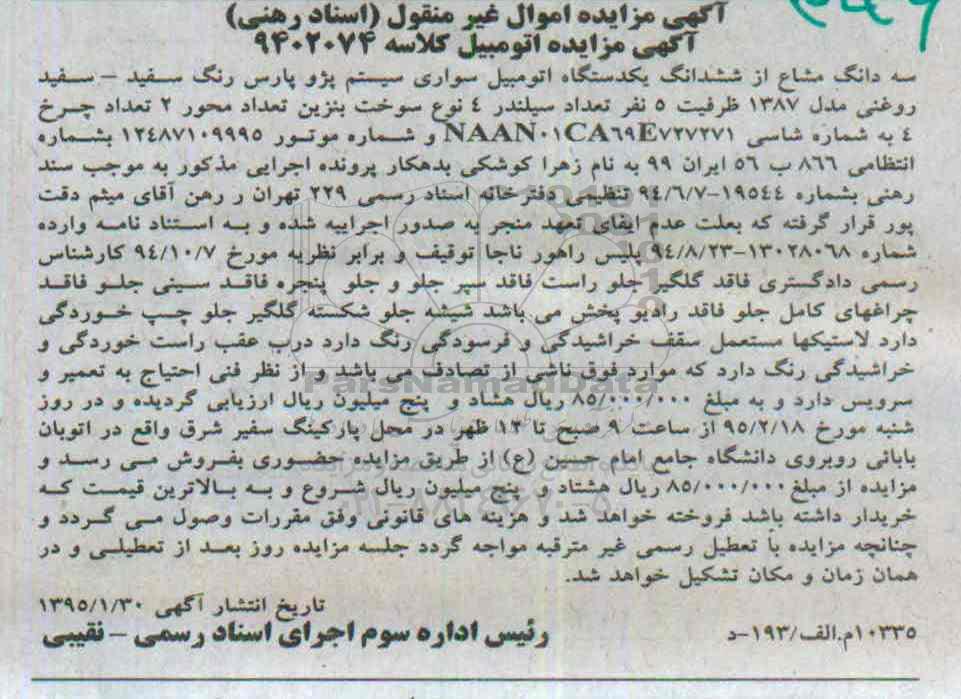 آگهی مزایده اموال غیر منقول (اسناد رهنی)
آگهی مزایده اتومبیل کلاسه ۹۴۰۲۰۷۴
سه دانگ مشاع از ششدانگ یکدستگاه اتومبیل سواری سیستم پژو پارس رنگ سفید – سفید
روغنی مدل ۱۳۸۷ ظرفیت ۵ نفر تعداد سیلندر ۴ نوع سوخت بنزین تعداد محور ۲ تعداد چرخ
۴ به شماره شاسی NAAN۰۱CA۶۹E۷۲۷۲۷۱ و شماره موتور ۱۲۴۸۷۱۰۹۹۹۵ بشماره
انتظامی ۸۶۶ ب ۵۶ ایران ۹۹ به نام زهرا کوشکی بدهکار پرونده اجرایی مذکور به موجب سند
رهنی بشماره ۱۹۵۴۴-۹۴/۶/۷ تنظیمی دفترخانه اسناد رسمی ۲۲۹ تهران ر رهن آقای میثم دقت
پور قرار گرفته که بعلت عدم ایفای تعهد منجر به صدور اجراییه شده و به استناد نامه وارده
شماره ۱۳۰۲۸۰۶۸-۹۴/۸/۲۳ پلیس راهور ناجا توقیف و برابر نظریه مورخ ۹۴/۱۰/۷ کارشناس
رسمی دادگستری فاقد گلگیر جلو راست فاقد سپر جلو و جلو پنجره فاقد سینی جلو فاقد
چراغهای کامل جلو فاقد رادیو پخش می باشد شیشه جلو شکسته گلگیر جلو چپ خوردگی
دارد لاستیکها مستعمل سقف خراشیدگی و فرسودگی رنگ دارد درب عقب راست خوردگی و
خراشیدگی رنگ دارد که موارد فوق ناشی از تصادف می باشد و از نظر فنی احتیاج به تعمیر و
سرویس دارد و به مبلغ ۸۵/۰۰۰/۰۰۰ ریال هشاد و پنج میلیون ریال ارزیابی گردیده و در روز
شنبه مورخ ۹۵/۲/۱۸ از ساعت ۹ صبح تا ۱۲ ظهر در محل پارکینگ سفیر شرق واقع در اتوبان
بابائی روبروی دانشگاه جامع امام حسین (ع) از طریق مزایده حضوری بفروش می رسد و
مزایده از مبلغ ۸۵/۰۰۰/۰۰۰ ریال هشتاد و پنج میلیون ریال شروع و به بالاترین قیمت که
خریدار داشته باشد فروخته خواهد شد و هزینه های قانونی وفق مقررات وصول می گردد و
چنانچه مزایده با تعطیل رسمی غیر مترقبه مواجه گردد جلسه مزایده روز بعد از تعطیلی و در
همان زمان و مکان تشکیل خواهد شد.
تاریخ انتشار آگهی ۱۳۹۵/۱/۳۰
۱۰۳۳۵م.الف/۱۹۳-د
رئیس اداره سوم اجرای اسناد رسمی – نقیبی
ParsNamadData